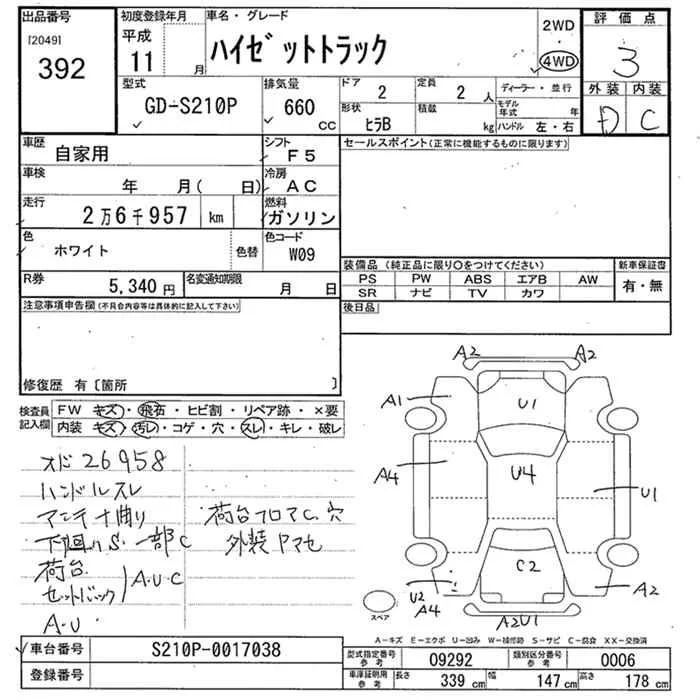 出品番号
[2049]
392
初度登録年月
平成
11
月
車名・グレード
ハイゼットトラック
2WD
4WD
評価点
3
外装 内装
D C
型式
GD-S210P
排気量
660
CC
ドア
2
定員
2 人
形状
ヒラB
積載
kg
ディーラー・並行
モデル年式 年
ハンドル 左・右
車歴
自家用
シフト
F5
車検
年 月( 日)
冷房
AC
走行
2万6千957
km
燃料
ガソリン
色
ホワイト
色替
色コード
W09
R券
5,340 円
名変通知期限
月 日
セールスポイント(正常に機能するものに限ります)
装備品(純正品に限り○をつけてください)
新車保証書
PS PW ABS エアB AW
SR ナビ TV カワ
有・無
後日品
注意事項申告欄(不具合内容等は具体的に記入して下さい)
修復歴 有〔箇所 〕
検査員記入欄
FW キズ・飛石・ヒビ割・リペア跡・×要
内装 キズ・汚レ・コゲ・穴・スレ・キレ・破レ
オド 26958
ハンドルスレ
アンテナ曲り
下廻りS・一部C
荷台
セットバック
A・U・C
A・U
荷台フロアC、穴
外装ヤマセ
A2
A2
A1
U1
A4
U4
U1
C2
U2
A4
A2
A2U1
スペア
A-キズ E-エクボ U-凹み W-補修跡 S-サビ C-腐食 XX-交換済
車台番号
S210P-0017038
登録番号
型式指定番号
参考
09292
類別区分番号
参考
0006
車庫証明用
参考
長さ
339 cm
幅
147 cm
高さ
178 cm